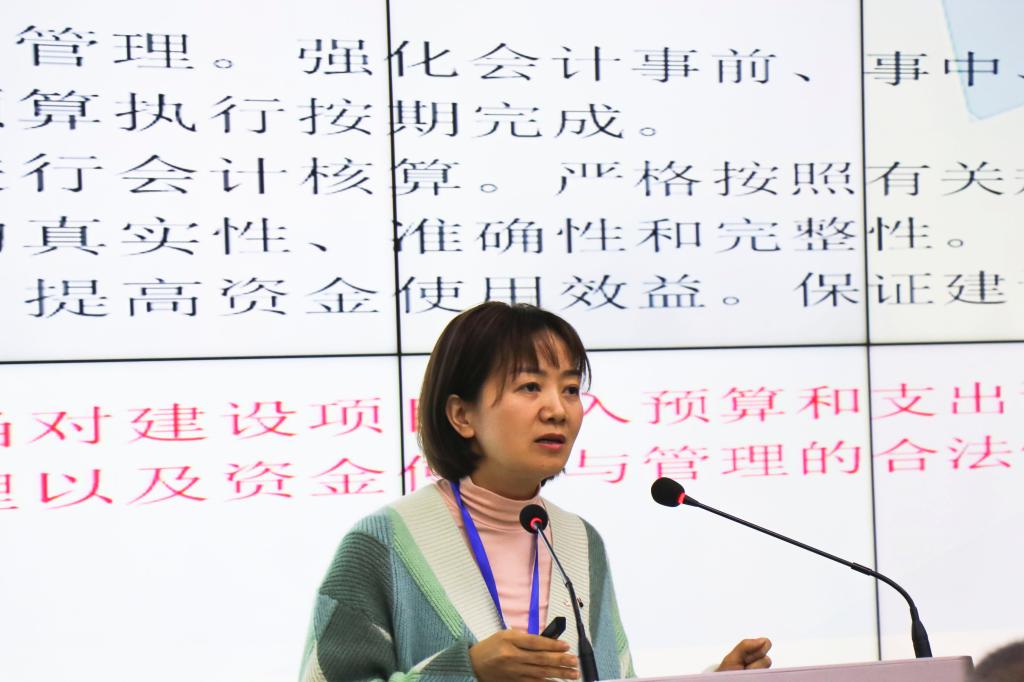 管理。强化会计事前、事中、
算执行按期完成。
行会计核算。严格按照有关
真实性、准确性和完整性。
提高资金使用效益。保证建
对建设项 入预算和支出
理以及资金 与管理的合法